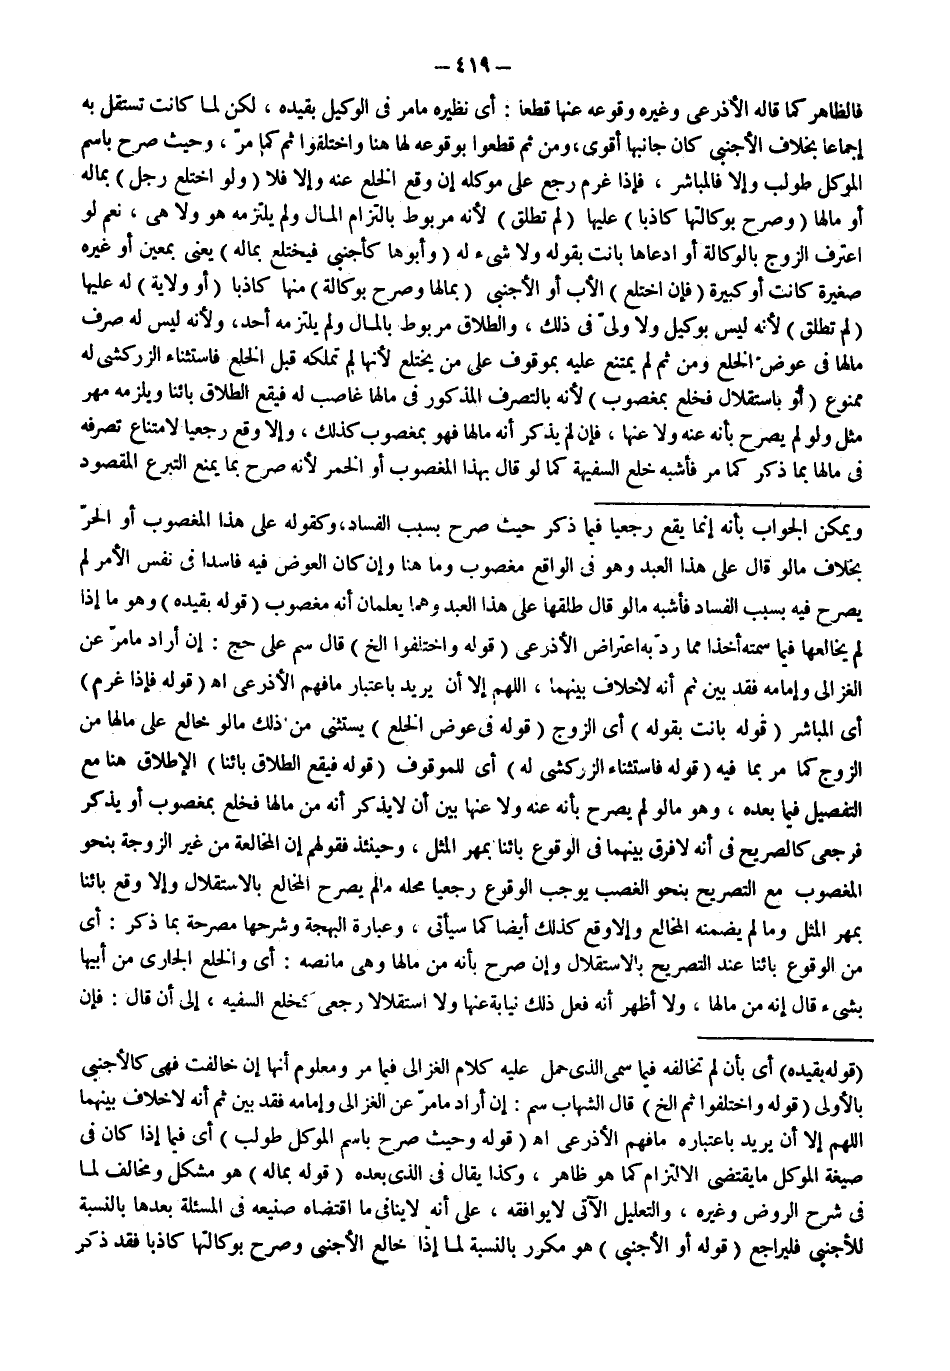 — ٤١٩ —
فالظاهر كما قاله الأذرعى وغيره وقوعه عنها قطعا : أى نظيره مامر فى الوكيل بقيده ، لكن لما كانت تستقل به
إجماعا بخلاف الأجنبى كان جانبها أقوى ، ومن ثم قطعوا بوقوعه لها هنا واختلفوا ثم كما مرّ ، وحيث صرح باسم
الموكل طولب وإلا فالمباشر ، فإذا غرم رجع على موكله إن وقع الخلع عنه وإلا فلا ( ولو اختلع رجل ) بماله
أو مالها ( وصرح بوكالتها كاذبا ) عليها ( لم تطلق ) لأنه مربوط بالتزام المال ولم يلتزمه هو ولا هى ، نعم لو
اعترف الزوج بالوكالة أو ادعاها بانت بقوله ولا شىء له ( وأبوها كأجنبى فيختلع بماله ) يعنى بمعين أو غيره
صغيرة كانت أو كبيرة ( فإن اختلع ) الأب أو الأجنبى ( بمالها وصرح بوكالة ) منها كاذبا ( أو ولاية ) له عليها
( لم تطلق ) لأنه ليس بوكيل ولا ولىّ فى ذلك ، والطلاق مربوط بالمال ولم يلتزمه أحد ، ولأنه ليس له صرف
مالها فى عوض الخلع ومن ثم لم يمتنع عليه بموقوف على من يختلع لأنها لم تملكه قبل الخلع فاستثناء الزركشى له
ممنوع ( أو باستقلال فخلع بمغصوب ) لأنه بالتصرف المذكور فى مالها غاصب له فيقع الطلاق بائنا ويلزمه مهر
مثل ولو لم يصرح بأنه عنه ولا عنها ، فإن لم يذكر أنه مالها فهو بمغصوب كذلك ، وإلا وقع رجعيا لامتناع تصرفه
فى مالها بما ذكر كما مر فأشبه خلع السفيهة كما لو قال بهذا المغصوب أو الخمر لأنه صرح بما يمنع التبرع المقصود
ويمكن الجواب بأنه إنما يقع رجعيا فيما ذكر حيث صرح بسبب الفساد ، وكقوله على هذا المغصوب أو الحرّ
بخلاف مالو قال على هذا العبد وهو فى الواقع مغصوب وما هنا وإن كان العوض فيه فاسدا فى نفس الأمر لم
يصرح فيه بسبب الفساد فأشبه مالو قال طلقها على هذا العبد وهما يعلمان أنه مغصوب ( قوله بقيده ) وهو ما إذا
لم يخالعها فيما سمته أخذا مما ردّ به اعتراض الأذرعى ( قوله واختلفوا الخ ) قال سم على حج : إن أراد مامرّ عن
الغزالى وإمامه فقد بين ثم أنه لاخلاف بينهما ، اللهم إلا أن يريد باعتبار مافهم الأذرعى اه ( قوله فإذا غرم )
أى المباشر ( قوله بانت بقوله ) أى الزوج ( قوله فى عوض الخلع ) يستثنى من ذلك مالو خالع على مالها من
الزوج كما مر بما فيه ( قوله فاستثناء الزركشى له ) أى للموقوف ( قوله فيقع الطلاق بائنا ) الإطلاق هنا مع
التفصيل فيما بعده ، وهو مالو لم يصرح بأنه عنه ولا عنها بين أن لايذكر أنه من مالها فخلع بمغصوب أو يذكر
فرجعى كالصريح فى أنه لافرق بينهما فى الوقوع بائنا بمهر المثل ، وحينئذ فقولهم إن المخالعة من غير الزوجة بنحو
المغصوب مع التصريح بنحو الغصب يوجب الوقوع رجعيا محله مالم يصرح المخالع بالاستقلال وإلا وقع بائنا
بمهر المثل وما لم يضمنه المخالع وإلا وقع كذلك أيضا كما سيأتى ، وعبارة البهجة وشرحها مصرحة بما ذكر : أى
من الوقوع بائنا عند التصريح بالاستقلال وإن صرح بأنه من مالها وهى مانصه : أى والخلع الجارى من أبيها
بشىء قال إنه من مالها ، ولا أظهر أنه فعل ذلك نيابة عنها ولا استقلالا رجعى كخلع السفيه ، إلى أن قال : فإن
(قوله بقيده) أى بأن لم تخالفه فيما سمى الذى حمل عليه كلام الغزالى فيما مر ومعلوم أنها إن خالفت فهى كالأجنبى
بالأولى ( قوله واختلفوا ثم الخ ) قال الشهاب سم : إن أراد مامرّ عن الغزالى وإمامه فقد بين ثم أنه لاخلاف بينهما
اللهم إلا أن يريد باعتباره مافهم الأذرعى اه ( قوله وحيث صرح باسم الموكل طولب ) أى فيما إذا كان فى
صيغة الموكل مايقتضى الالتزام كما هو ظاهر ، وكذا يقال فى الذى بعده ( قوله بماله ) هو مشكل ومخالف لما
فى شرح الروض وغيره ، والتعليل الآتى لايوافقه ، على أنه لاينافى ما اقتضاه صنيعه فى المسئلة بعدها بالنسبة
للأجنبى فليراجع ( قوله أو الأجنبى ) هو مكرر بالنسبة لما إذا خالع الأجنبى وصرح بوكالتها كاذبا فقد ذكر